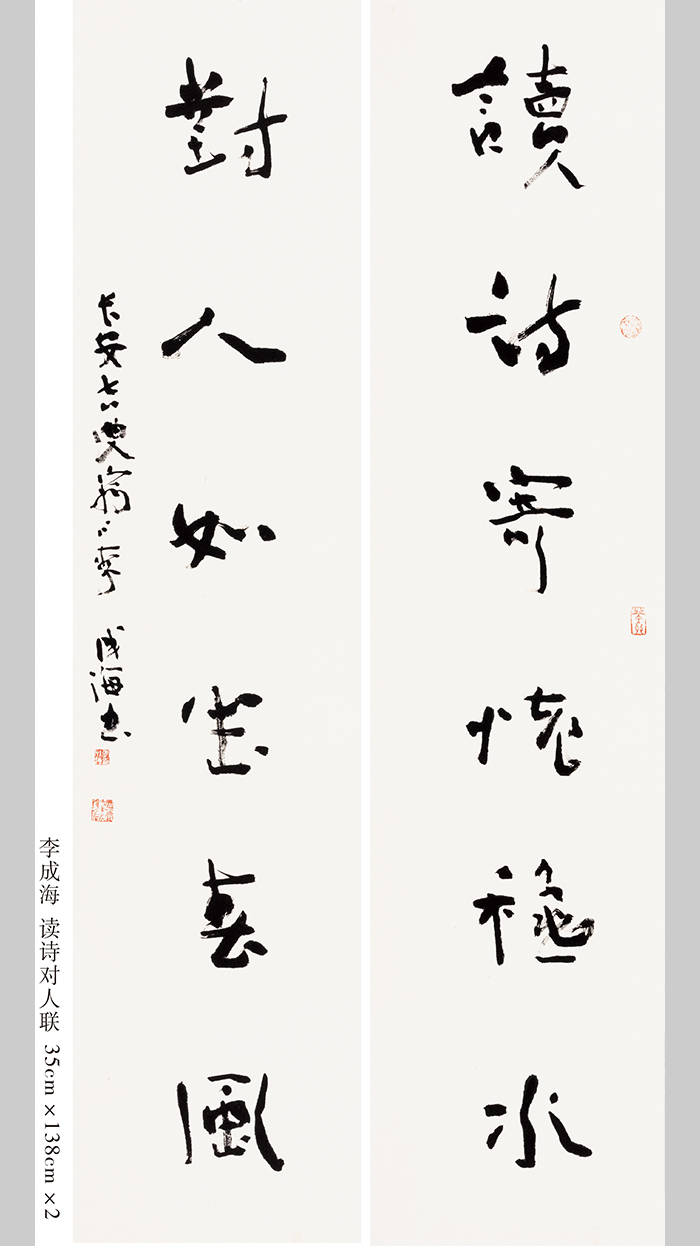 讀詩寄懷穐水
對人如坐春風
長安叟李 成海書
李成海 读诗对人联 35cm×138cm×2